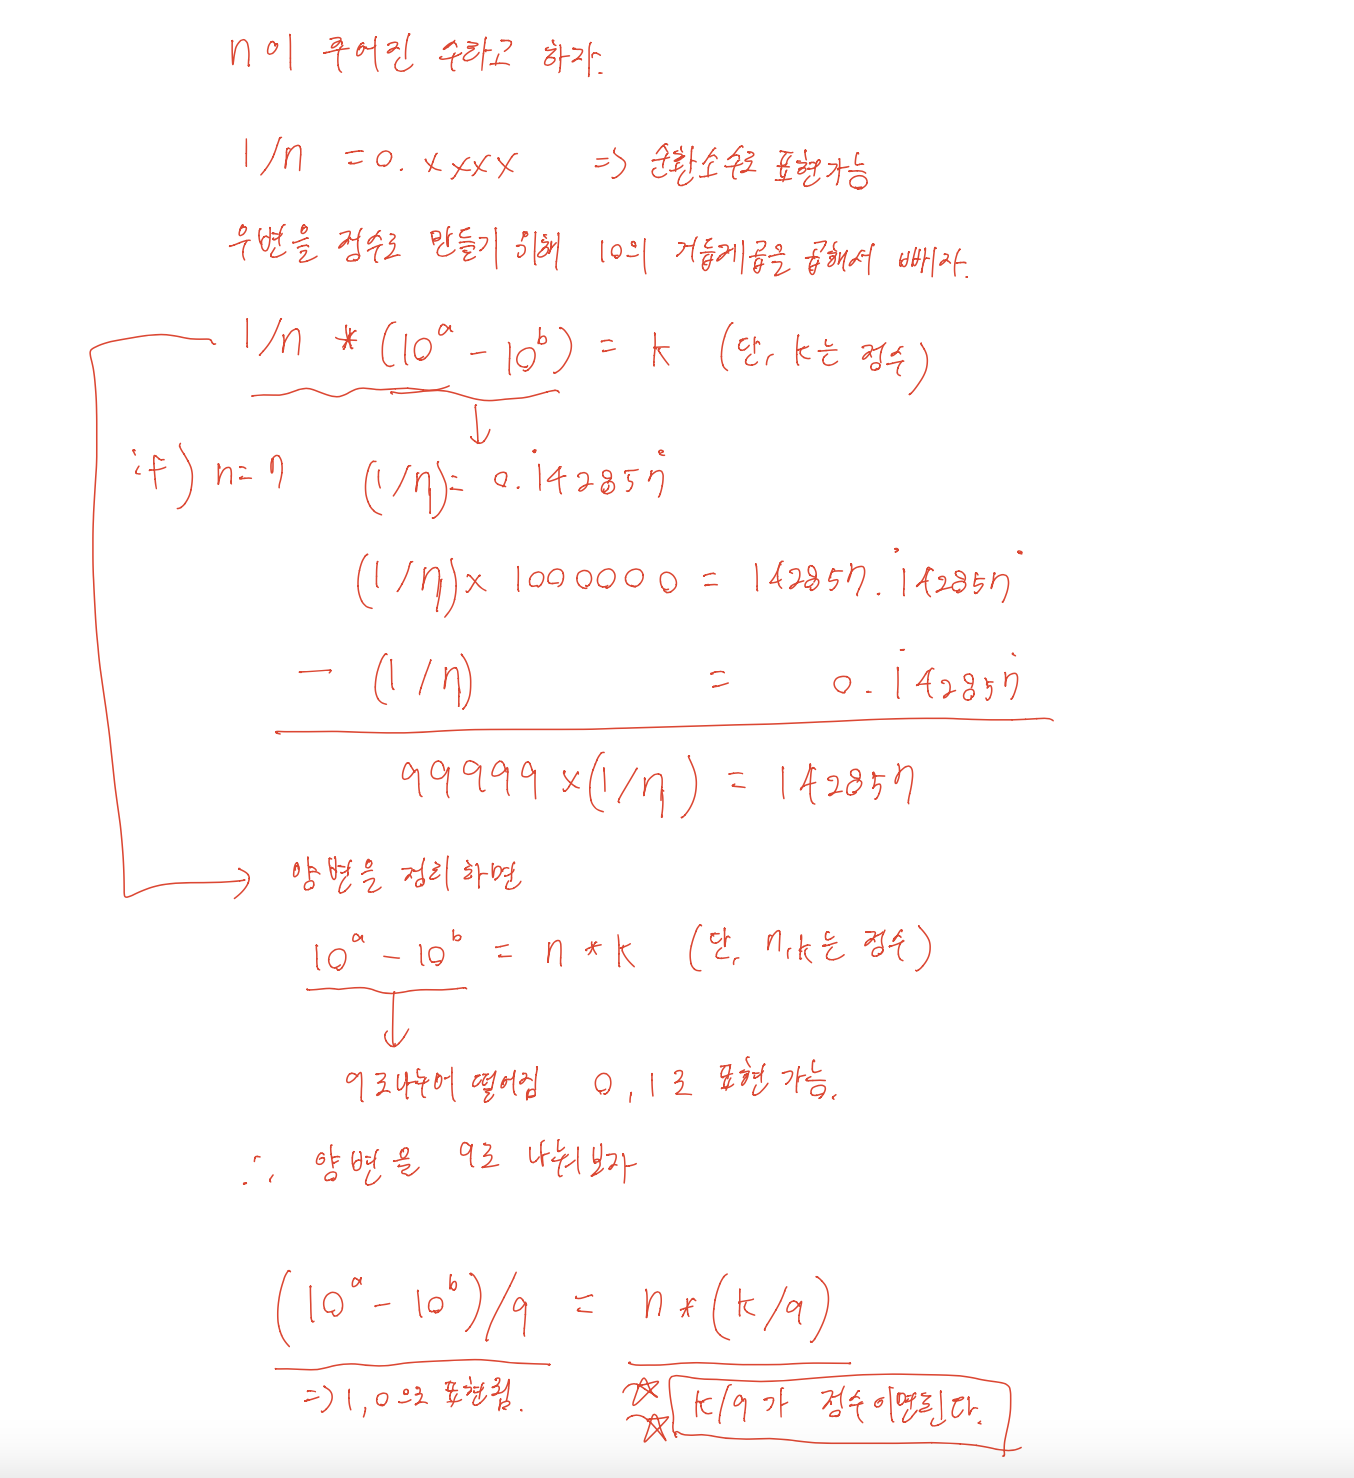 n이 주어진 수라고 하자.
1/n = 0.xxxx => 순환소수로 표현가능
우변을 정수로 만들기 위해 10의 거듭제곱을 곱해서 빼자.
1/n * (10^a - 10^b) = k (단, k는 정수)
if) n=7 (1/7)= 0.1̇42857̇
(1/7)x 1000000 = 142857.1̇42857̇
- (1/7) = 0.1̇42857̇
99999 x(1/7) = 142857
양변을 정리하면
10^a - 10^b = n * k (단, n,k는 정수)
9로나누어 떨어짐 0,1로 표현 가능.
∴ 양변을 9로 나눠보자
(10^a - 10^b)/9 = n*(k/9)
=> 1,0으로 표현됨. ☆☆ k/9가 정수이면된다.